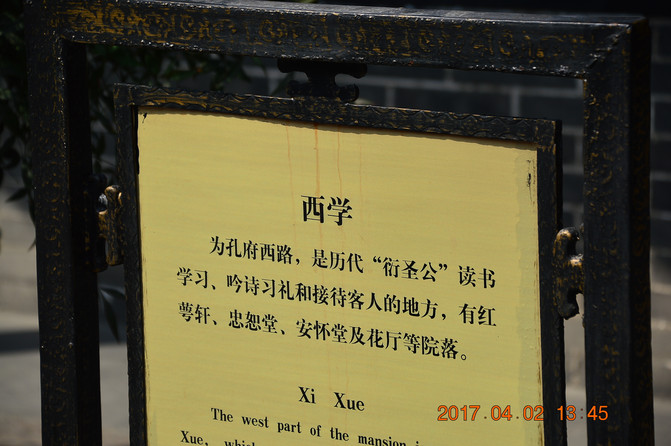 西学
为孔府西路，是历代“衍圣公”读书
学习、吟诗习礼和接待客人的地方，有红
萼轩、忠恕堂、安怀堂及花厅等院落。
Xi Xue
The west part of the mansion
Xue,
2017.04.02 13:45